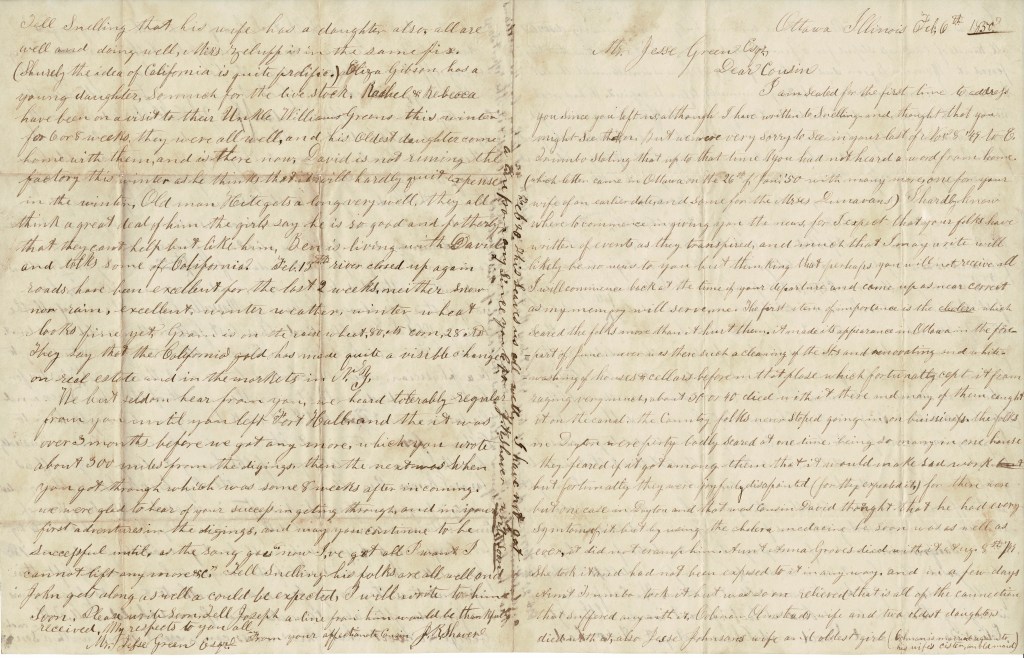 Tell Snelling that his wife has a daughter also, all are
well and doing well, Mrs Zeluff is in the same fix.
(Shurely the idea of California is quite prolific.) Eliza Gibson has a
young daughter, So much for the live stock, Rachel & Rebecca
have been on a visit to their Unkle William Greens this winter
for 6 or 8 weeks, they were all well, and his Oldest daughter came
home with them, and is there now, David is not runing the
factory this winter as he thinks that it will hardly quit expense
in the winter, Old man Hite gets along very well, they all
think a great deal of him the girls say he is so good and fatherly
that they cant help but like him, Ben is living with David
and talks some of California. Feb 15th river closed up again
roads have been excellent for the last 2 weeks, neither snow
nor rain, excellent winter weather, winter wheat
looks fine yet Grain is on the raise wheat, 80, cts corn, 28, cts
They say that the California gold has made quite a visible change
on real estate and in the markets in N. Y.
We but seldom hear from you, we heard tolerably regular
from you until you left Fort Hall and the it was
over 3 months before we got any more, which you wrote
about 300 miles from the digings, then the next was when
you got through which was some 8 weeks after in coming,
we were glad to hear of your success in geting through, and in your
first adventures in the digings, and may you continue to be
successful until as the song goes "now I,ve got all I want I
cannot lift any more &c." Tell Snelling his folks are all well and
John gets along as well a could be expected, I will write to him
Soon, Please write Soon, Tell Joseph a line from him would be thankfully
received, My respects to you all,
Mr. Jesse Green Esqr. From your affectionate Cousin J B Shaver
Feb 20, This leaves us all well. I have not got
a line from any since you left J. N. Shaver
Ottawa Illinois Feb, 6th 1850
Mr. Jesse Green Esqr,
Dear Cousin
I am seated for the first time to address
you since you left us although I have written to Snelling and thought that you
might See them, But we were very sorry to See in your last of Nov 8 '49 to
stating that up to that time you had not heard a word from home.
(which letter came in Ottawa on the 26th of Jan, '50 with many more, some for your
wife of an earlier date and some for the Mrses Dunavans) I hardly know
where to commence in giving you the news, for I expect that your folks have
written of events as they transpired, and much that I may write will
likely be no news to you but thinking that perhaps you will not receive all
I will commence back at the time of your departure and come up as near correct
as my memory will serve me. The first item of importance is the cholera which
scared the folks more than it hurt them, it made its apperance in Ottawa in the fore
part of June, never was there such a cleaning of the Sts and renovating and white-
washing of houses & cellars before in that place which fortunatly kept it from
raging very much, about 35 or 40 died with it there and many of them caught
it on the canal, the Country folks never stoped going in on buisiness, the folks
in Dayton were pretty badly scared at one time being so many in one house
they feared if it got among them that it would make sad work
but fortunatly they were joyfuly disapointed (for they expected it) for there was
but one case in Dayton and that was Cousin David thought that he had every
symtom of it but by using the cholera medacine he soon was as well as
ever, it did not cramp him Aunt Anna Groves died with it Aug. 8th '49,
She took it and had not been exposed to it in any way. and in a few days
Aunt took it but was so on relieved that is all of the connection
that suffered any with it, Coleman Olmsteads wife and two eldest daughters
died with it, also Jesse Johnsons wife and oldest girl (Coleman is married again to
his wifes sister, an old maid)